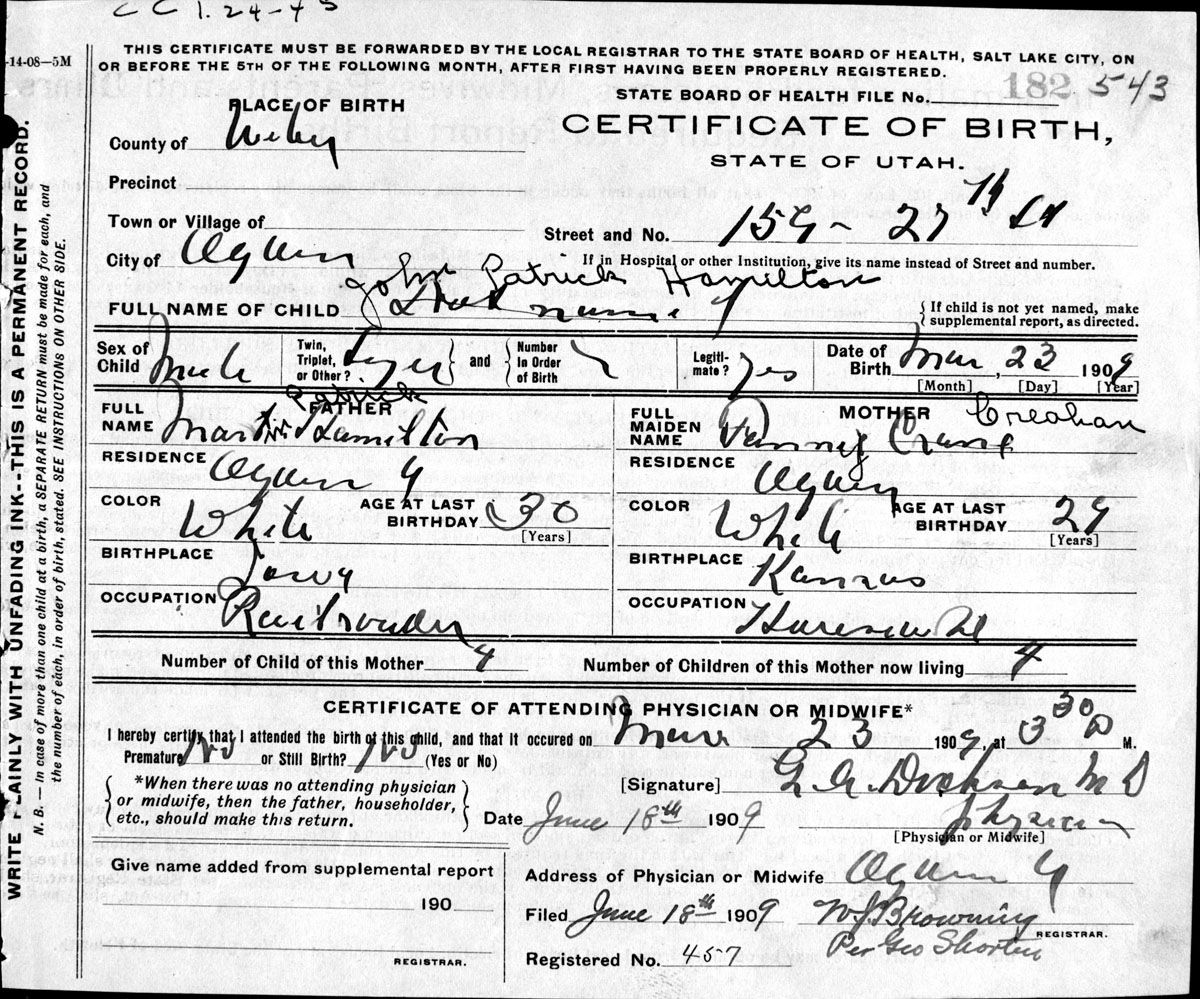 CC 1.24-45
-14-08—5M
THIS CERTIFICATE MUST BE FORWARDED BY THE LOCAL REGISTRAR TO THE STATE BOARD OF HEALTH, SALT LAKE CITY, ON
OR BEFORE THE 5TH OF THE FOLLOWING MONTH, AFTER FIRST HAVING BEEN PROPERLY REGISTERED.
STATE BOARD OF HEALTH FILE No. 182 543
PLACE OF BIRTH
CERTIFICATE OF BIRTH,
STATE OF UTAH.
County of Weber
Precinct
Town or Village of
Street and No. 159 - 27th St
City of Ogden
If in Hospital or other Institution, give its name instead of Street and number.
John Patrick Hamilton
FULL NAME OF CHILD
If child is not yet named, make
supplemental report, as directed.
Sex of Child Male
Twin, Triplet, or Other?
and
Number in Order of Birth
Legiti-mate? yes
Date of Birth Mar, 23 1909
[Month] [Day] [Year]
FATHER
FULL NAME Martin Patrick Hamilton
RESIDENCE Ogden
COLOR White
AGE AT LAST BIRTHDAY 30
[Years]
BIRTHPLACE Iowa
OCCUPATION Railroader
MOTHER
FULL MAIDEN NAME Creahan
RESIDENCE Ogden
COLOR White
AGE AT LAST BIRTHDAY 29
[Years]
BIRTHPLACE Kansas
OCCUPATION
Number of Child of this Mother 4
Number of Children of this Mother now living 4
CERTIFICATE OF ATTENDING PHYSICIAN OR MIDWIFE*
I hereby certify that I attended the birth of this child, and that it occured on Mar 23 1909, at 3 30 M.
Premature No or Still Birth? No (Yes or No)
*When there was no attending physician
or midwife, then the father, householder,
etc., should make this return.
[Signature] M D
Date June 18th 1909
Physician
[Physician or Midwife]
Give name added from supplemental report
190
REGISTRAR.
Address of Physician or Midwife Ogden
Filed June 18th 1909 W J Browning
REGISTRAR.
Per Geo Shorten
Registered No. 457
WRITE PLAINLY WITH UNFADING INK--THIS IS A PERMANENT RECORD.
N. B.—In case of more than one child at a birth, a SEPARATE RETURN must be made for each, and
the number of each, in order of birth, stated. SEE INSTRUCTIONS ON OTHER SIDE.